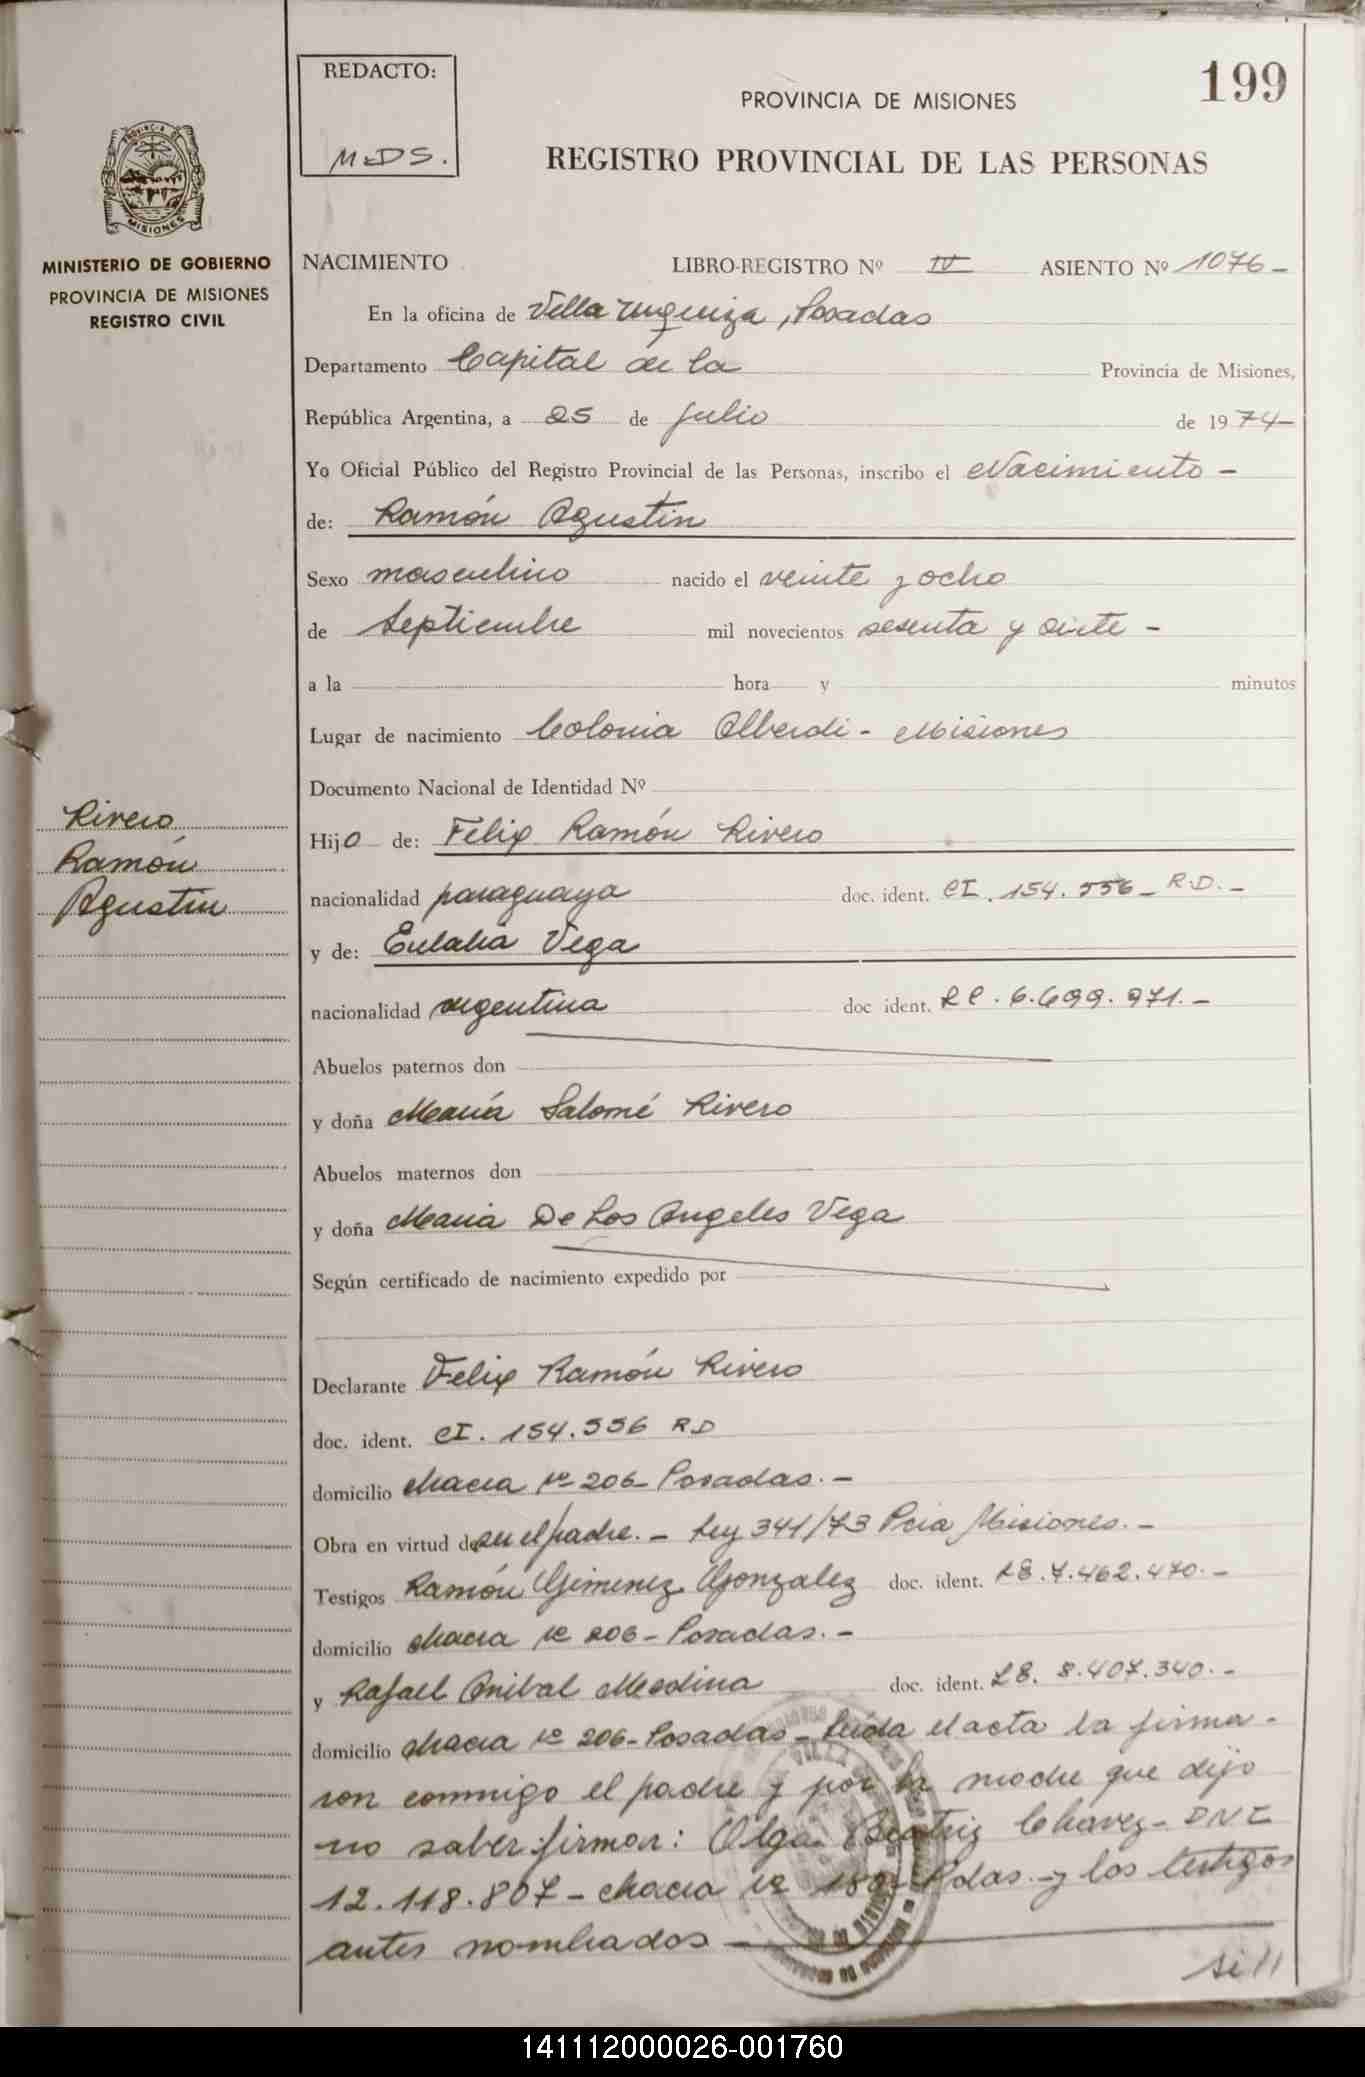 REDACTO:
M.D.S.
199
PROVINCIA DE MISIONES
REGISTRO PROVINCIAL DE LAS PERSONAS
PROVINCIA DE
MISIONES
MINISTERIO DE GOBIERNO
PROVINCIA DE MISIONES
REGISTRO CIVIL
NACIMIENTO LIBRO-REGISTRO Nº IV ASIENTO Nº 1076-
En la oficina de Villa Urquiza, Posadas
Departamento Capital de la Provincia de Misiones,
República Argentina, a 25 de Julio de 1974-
Yo Oficial Público del Registro Provincial de las Personas, inscribo el Nacimiento -
de: Ramón Agustin
Sexo masculino nacido el veinte y ocho
de Septiembre mil novecientos sesenta y siete -
a la hora y minutos
Lugar de nacimiento Colonia Alberdi - Misiones
Documento Nacional de Identidad Nº
Rivero
Ramón
Agustin
Hijo de: Felix Ramón Rivero
nacionalidad paraguaya doc. ident. CI. 154.556- R.D.-
y de: Eulalia Vega
nacionalidad argentina doc ident. LC. 6.699.971.-
Abuelos paternos don
y doña María Salomé Rivero
Abuelos maternos don
y doña Maria De Los Angeles Vega
Según certificado de nacimiento expedido por
Declarante Felix Ramón Rivero
doc. ident. CI. 154.556 RD
domicilio chacra Nº 206- Posadas.-
Obra en virtud de ser el padre.- Ley 341/73 Pcia Misiones.-
Testigos Ramón Gimenez Gonzalez doc. ident. LE. 7.462.470.-
domicilio chacra Nº 206- Posadas.-
y Rafael Anibal Medina doc. ident. LE. 8.407.340.-
domicilio chacra Nº 206- Posadas- Leida el acta la firma-
ron conmigo el padre y por la madre que dijo
no saber firmar: Olga Beatriz Chavez- DNI
12.118.807- chacra Nº 180- Pdas.- y los testigos
antes nombrados -
141112000026-001760